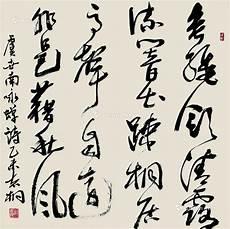 垂緌飲清露
流響出疎桐居
高聲自遠
非是藉秋風
虞世南詠蟬詩乙未桐